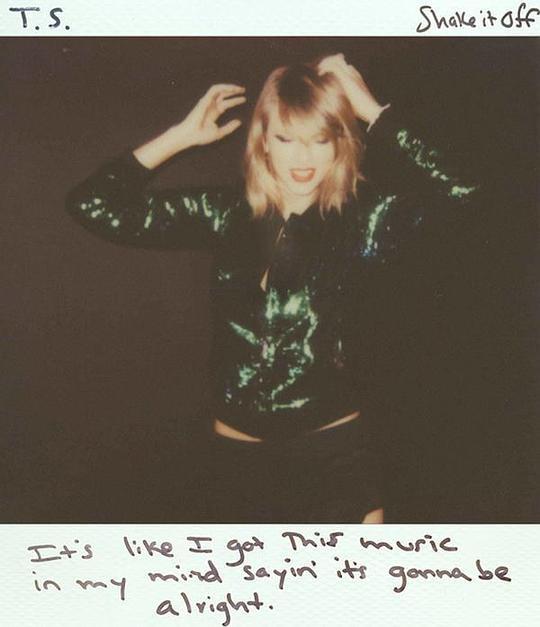 T.S.
Shake it Off
It's like I got This music
in my mind sayin' it's gonna be
alright.